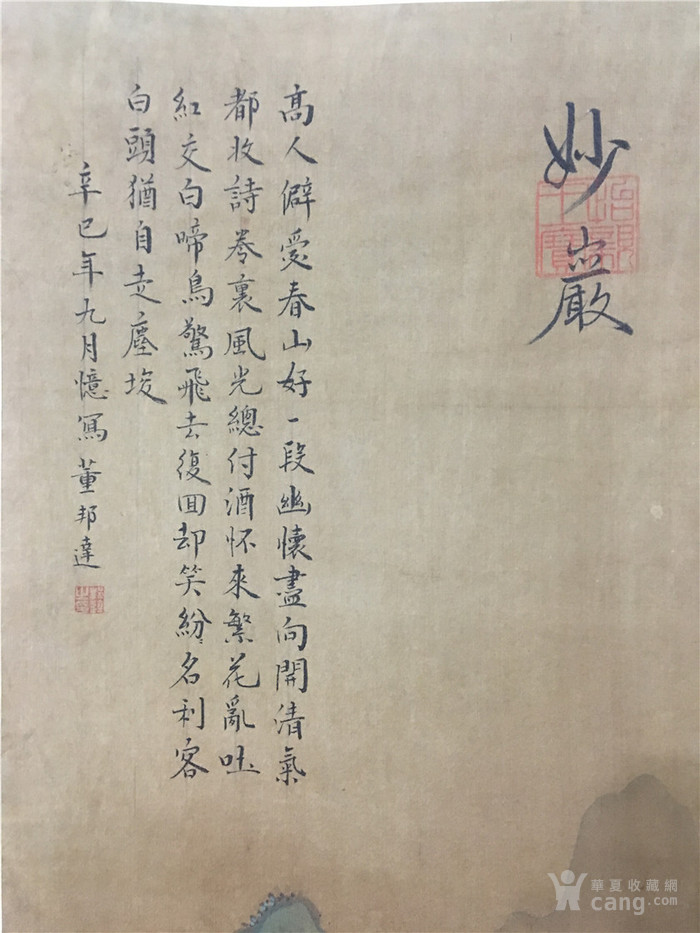 妙巖
高人僻愛春山好一段幽懷盡向開清氣
都收詩卷裏風光總付酒懷來繁花亂吐
紅交白啼鳥驚飛去復回却笑紛〻名利客
白頭猶自走塵埃
辛巳年九月憶寫董邦達
華夏收藏網
cang.com